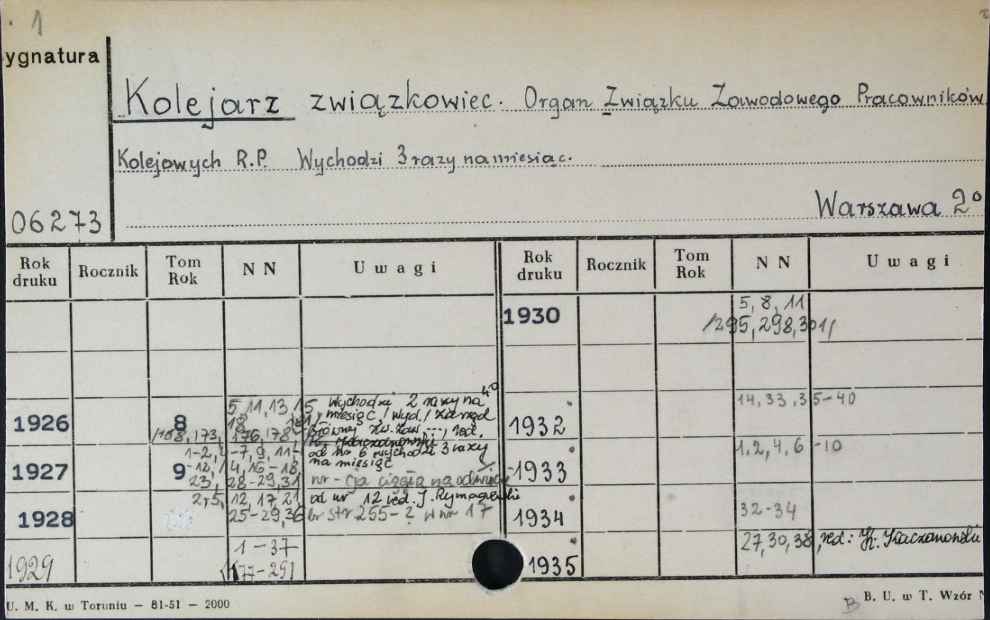 1
ygnatura
Kolejarz związkowiec. Organ Związku Zawodowego Pracowników
Kolejowych R.P. Wychodzi 3 razy na miesiąc.
06273
Warszawa 2°
Rok druku Rocznik Tom Rok NN Uwagi Rok druku Rocznik Tom Rok NN Uwagi
1930 5, 8, 11
/295, 298, 301/
1926 8 5, 11, 13, 15 Wychodzi 2 razy na 4°
miesiąc /wyd/ Zarząd
/168, 173, 176, 178, Główny Zw. Zaw. red.
1932 14, 33, 35-40
1927 9 od nr 6 wychodzi 3 razy
na miesiąc
23, 28-29, 31 nr-cja ciągła na odwrocie
1933 1, 2, 4, 6-10
1928 2, 5, 12, 17, 21 od nr 12 red. J. Rymar
25-29, 36 br str 255-? w nr 17
1934 32-34
1929 1-37
1935 27, 30, 38, red: K. Kaczanowski
U. M. K. w Toruniu — 81-51 — 2000
B B. U. w T. Wzór N